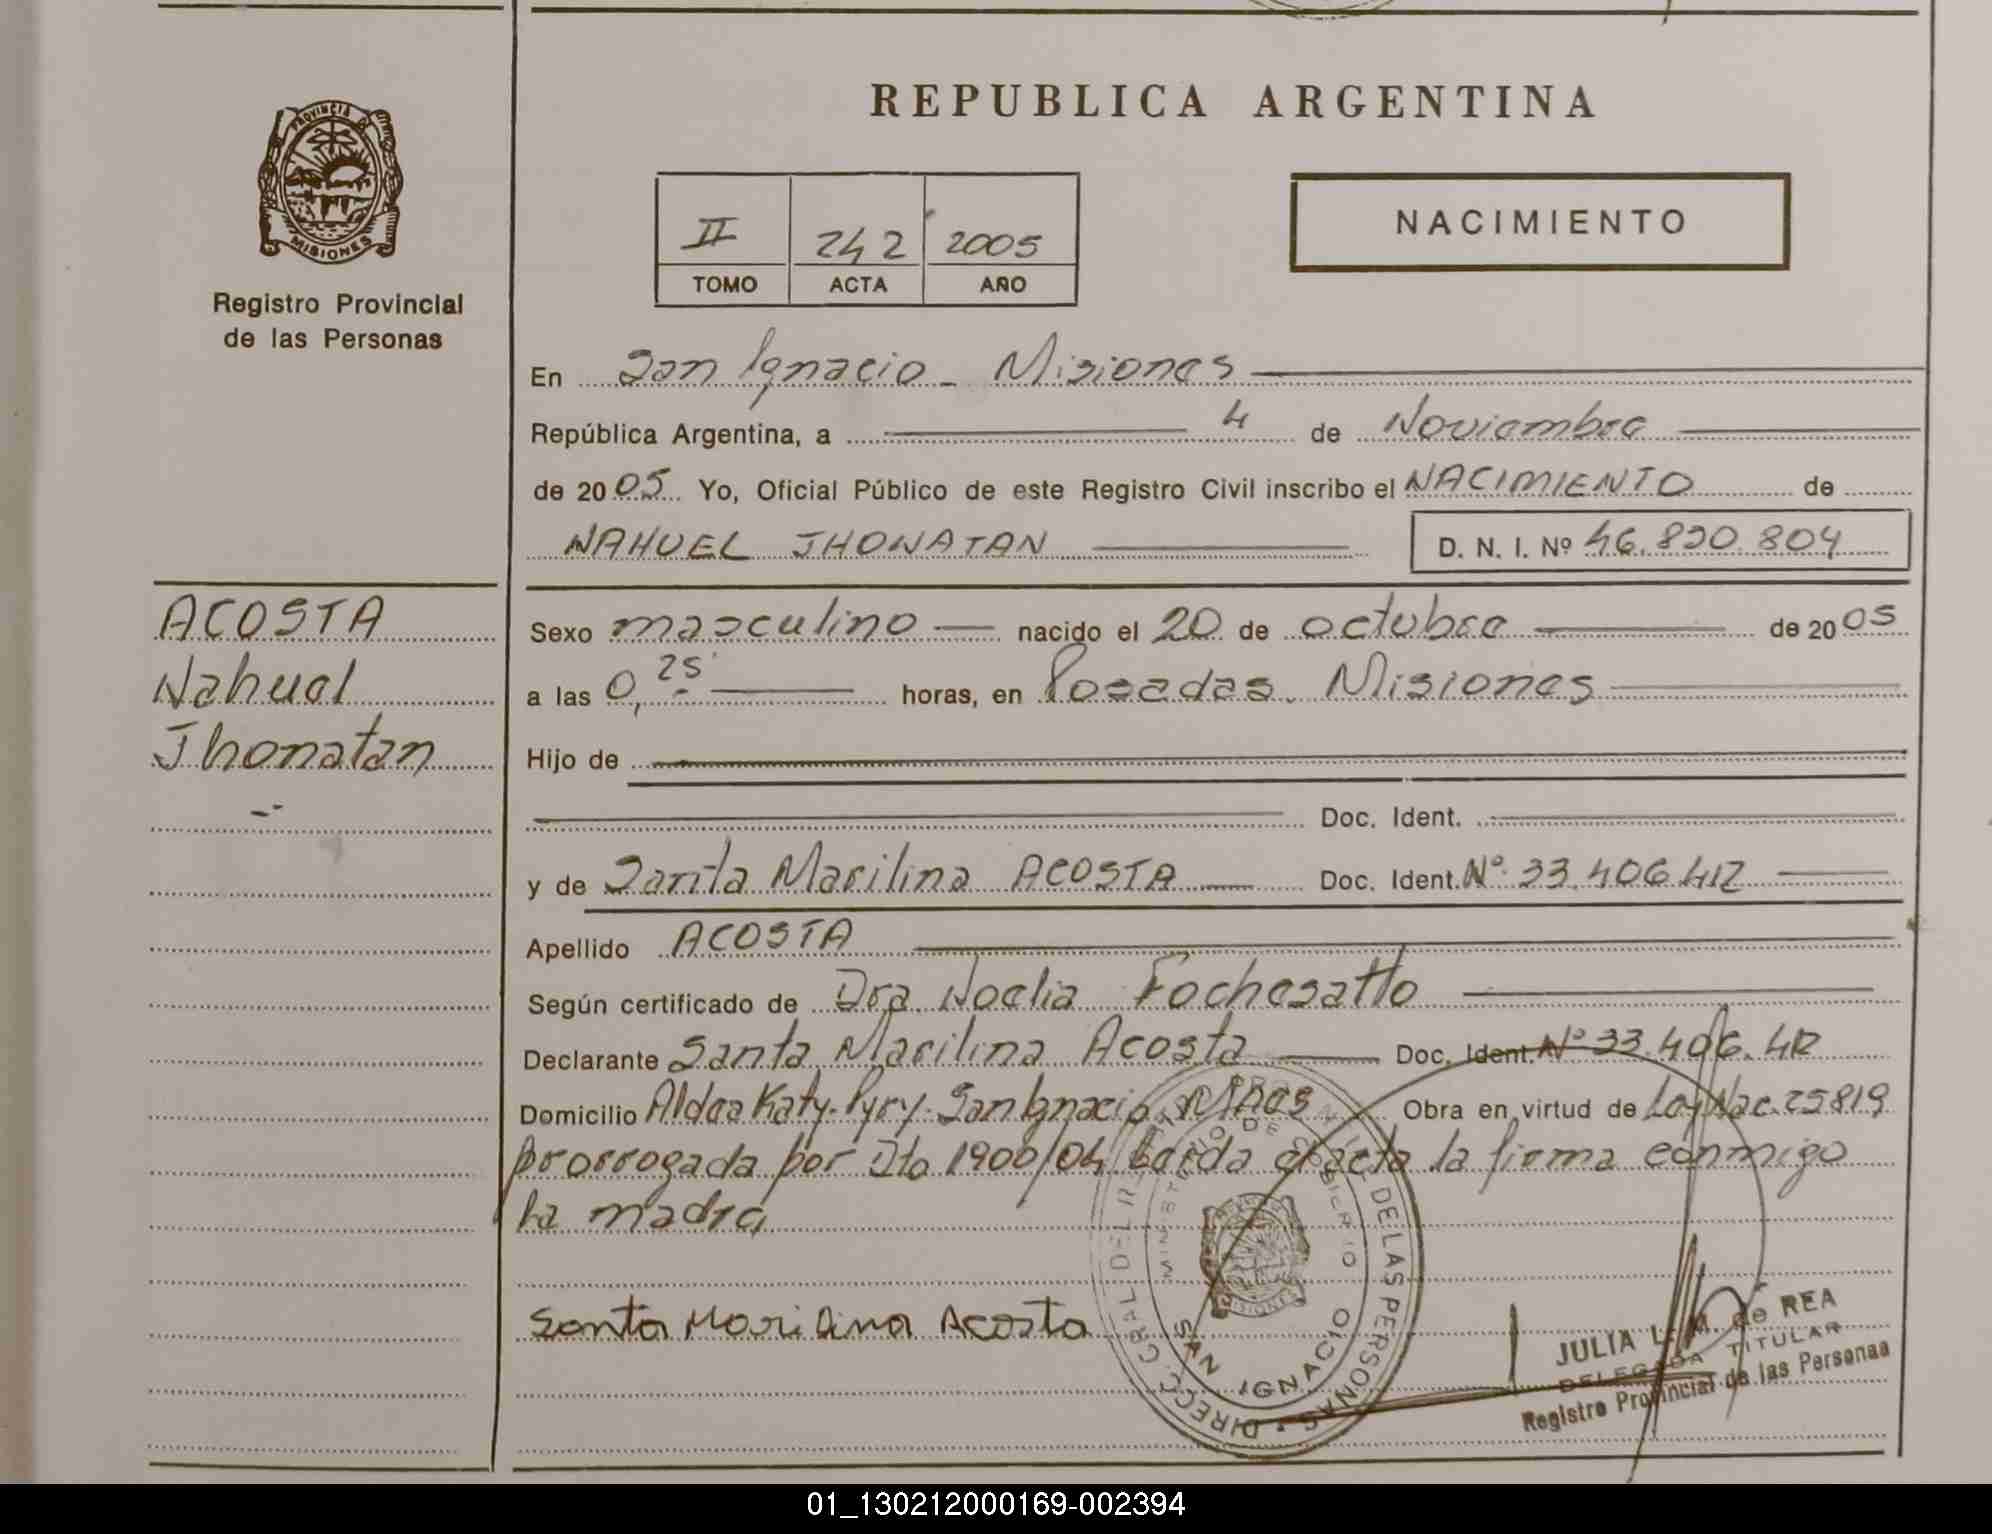 REPUBLICA ARGENTINA
PROVINCIA DE
MISIONES
Registro Provincial
de las Personas
II 242 2005
TOMO ACTA AÑO
NACIMIENTO
En San Ignacio - Misiones
República Argentina, a 4 de Noviembre
de 2005 Yo, Oficial Público de este Registro Civil inscribo el NACIMIENTO de
NAHUEL JHONATAN D. N. I. Nº 46.820.804
ACOSTA
Nahuel
Jhonatan
Sexo masculino nacido el 20 de octubre de 2005
a las 0,25 horas, en Posadas. Misiones
Hijo de
Doc. Ident.
y de Santa Marilina ACOSTA Doc. Ident. Nº 33.406.412
Apellido ACOSTA
Según certificado de Dra. Noelia Fochesatto
Declarante Santa Marilina Acosta Doc. Ident. Nº 33.406.412
Domicilio Aldea Katy-Pyry-San Ignacio, Mnes Obra en virtud de Ley Nac. 25819
prorrogada por Dto 1900/04 el acta la firma conmigo
la madre,
Santa Marilina Acosta
DE LAS PERSONAS
MISIONES
SAN IGNACIO
JULIA L. M. de REA
DELEGADA TITULAR
Registro Provincial de las Personas
01_130212000169-002394